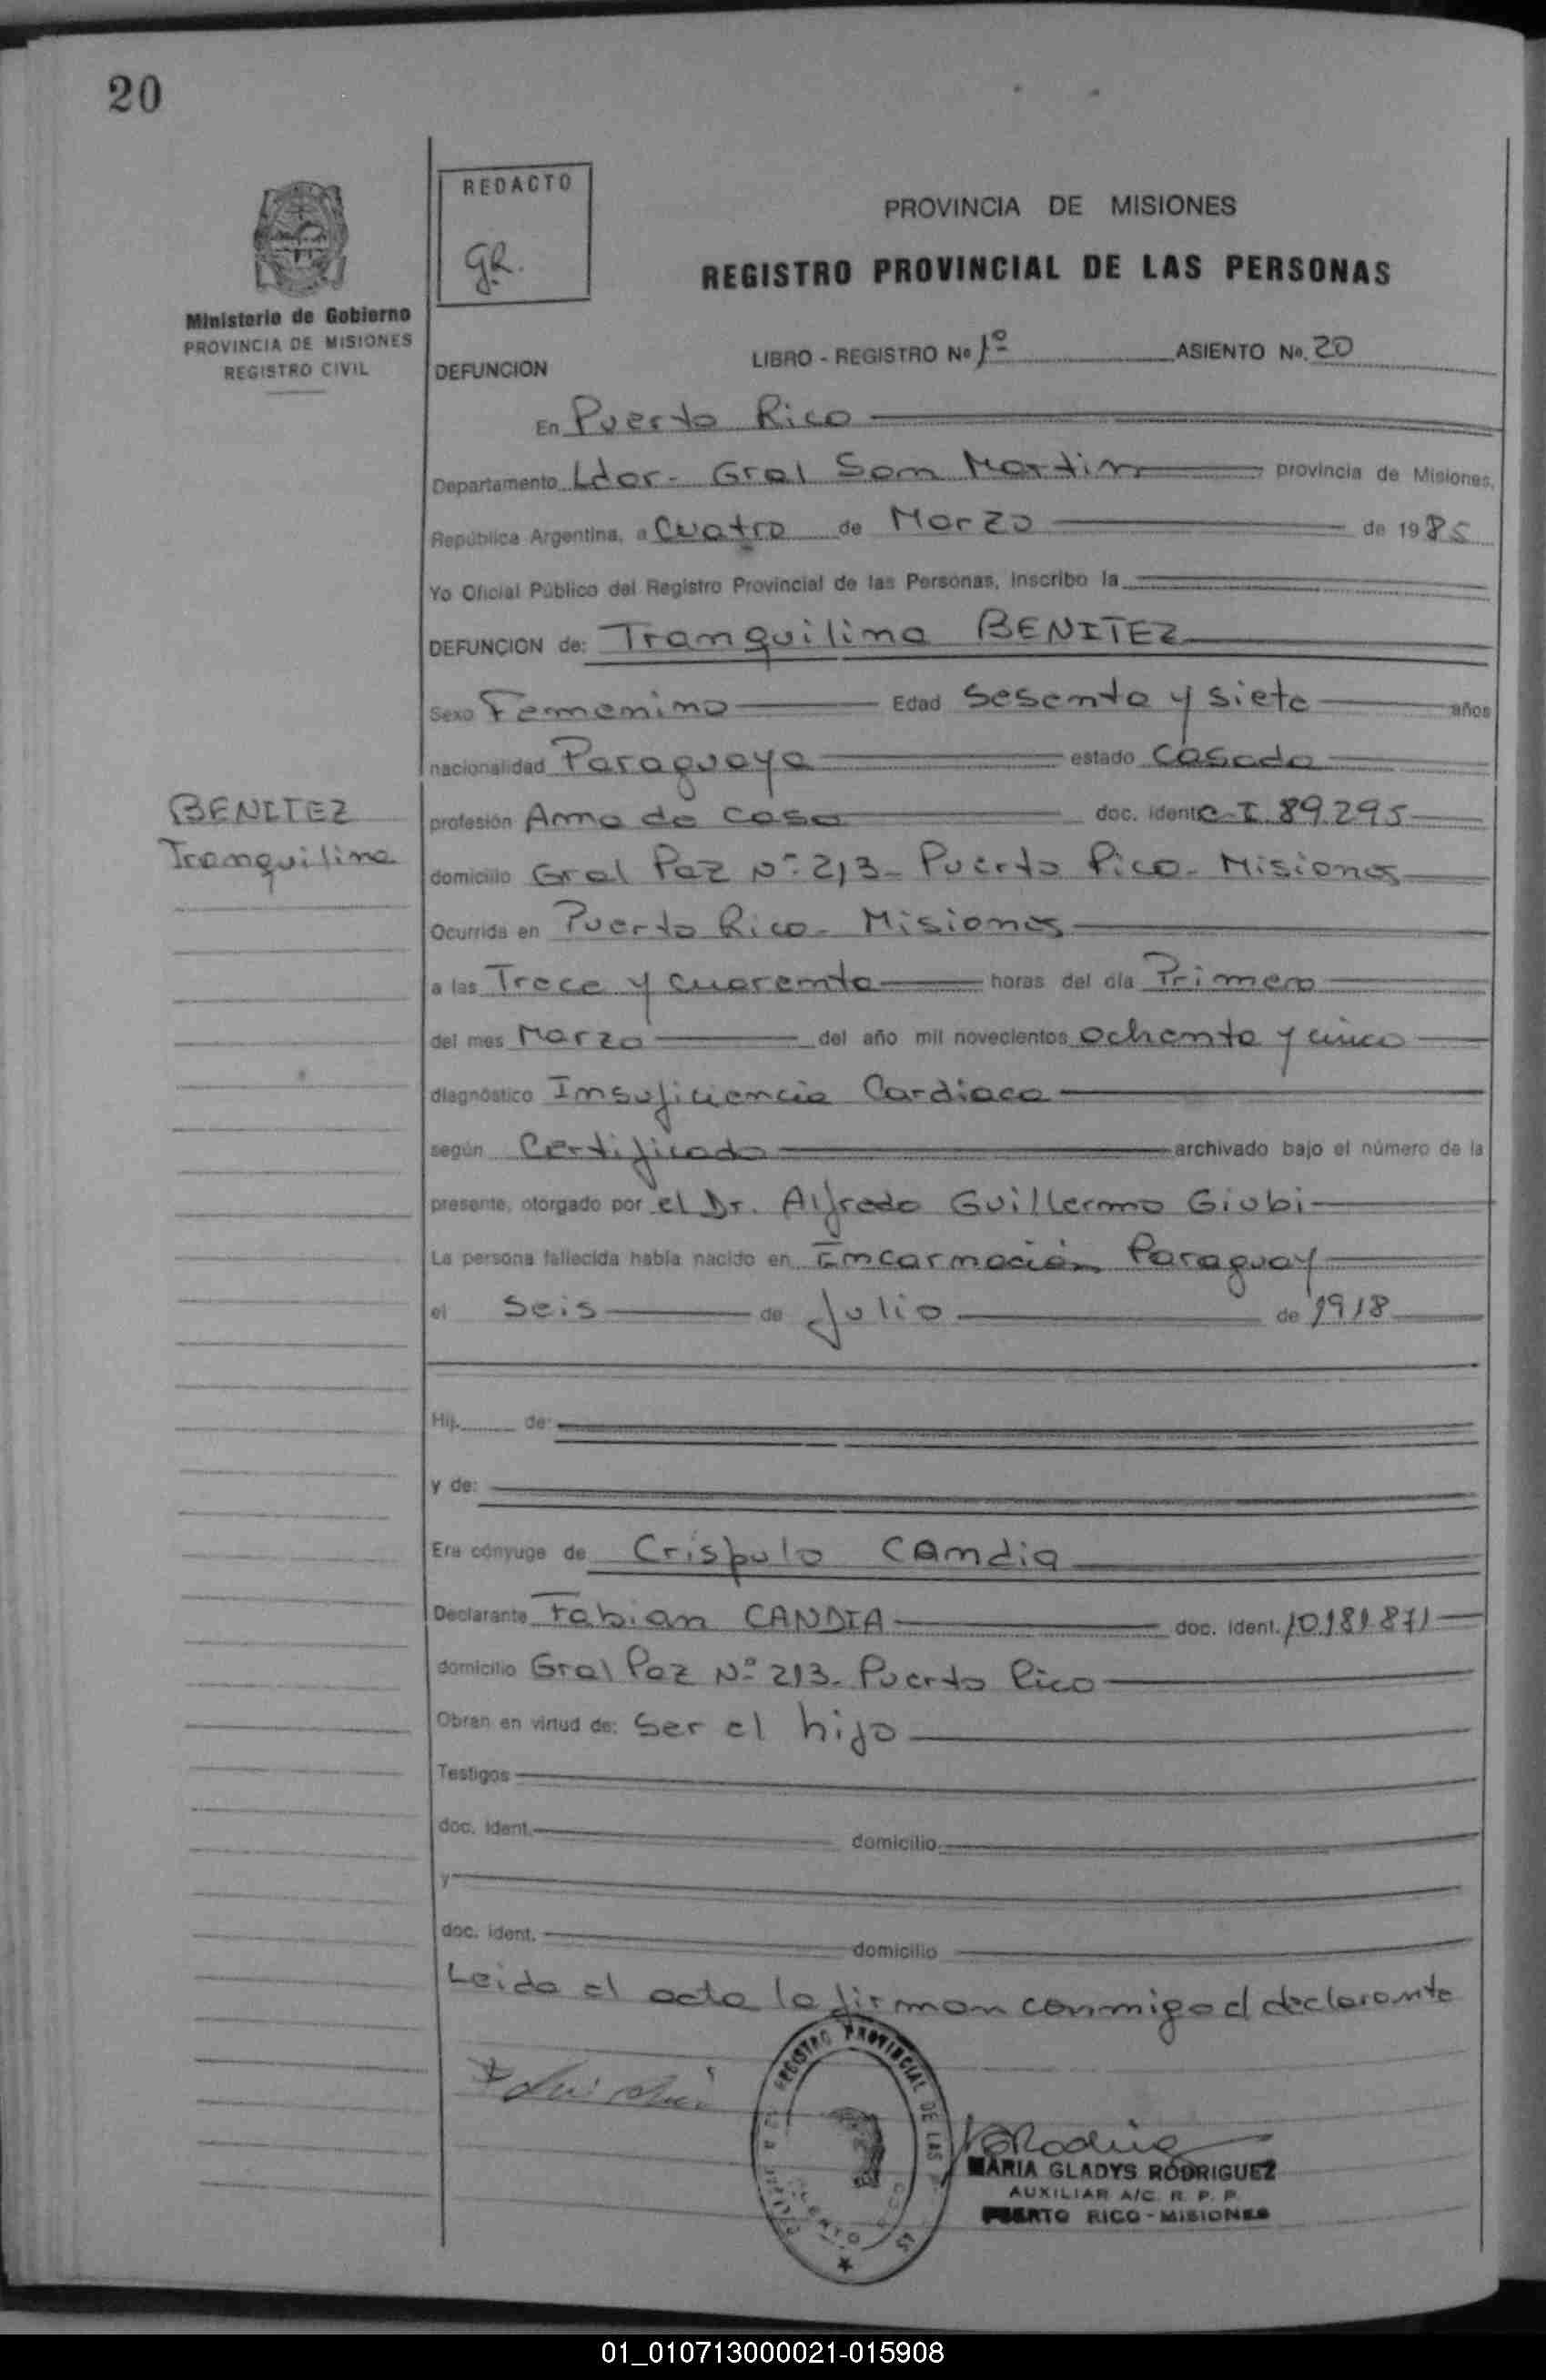 20
REDACTO
gR.
PROVINCIA DE MISIONES
REGISTRO PROVINCIAL DE LAS PERSONAS
Ministerio de Gobierno
PROVINCIA DE MISIONES
REGISTRO CIVIL
DEFUNCION
LIBRO - REGISTRO Nº 1º ASIENTO Nº. 20
En Puerto Rico
Departamento Ldor- Gral San Martin provincia de Misiones,
República Argentina, a Cuatro de Marzo de 1985
Yo Oficial Público del Registro Provincial de las Personas, inscribo la
DEFUNCION de: Tranquilina BENITEZ
Sexo Femenino Edad Sesenta y siete años
nacionalidad Paraguaya estado Casada
BENITEZ
Tranquilina
profesión Ama de casa doc. ident C-I 89.295
domicilio Gral Paz Nº 213- Puerto Rico- Misiones
Ocurrida en Puerto Rico- Misiones
a las Trece y cuarenta horas del día Primero
del mes Marzo del año mil novecientos ochenta y cinco
diagnóstico Insuficiencia Cardiaca
según Certificado archivado bajo el número de la
presente, otorgado por el Dr. Alfredo Guillermo Giubi
La persona fallecida había nacido en Encarnación Paraguay
el seis de Julio de 1918
Hij. de:
y de:
Era cónyuge de Crispulo CAndia
Declarante Fabian CANDIA doc. ident. 10.181.871
domicilio Gral Paz Nº 213- Puerto Rico
Obran en virtud de: Ser el hijo
Testigos
doc. ident. domicilio
y
doc. ident. domicilio
Leida el acta la firman conmigo el declarante
REGISTRO PROVINCIAL DE LAS
MARIA GLADYS RODRIGUEZ
AUXILIAR A/C. R. P. P.
PUERTO RICO - MISIONES
01_010713000021-015908